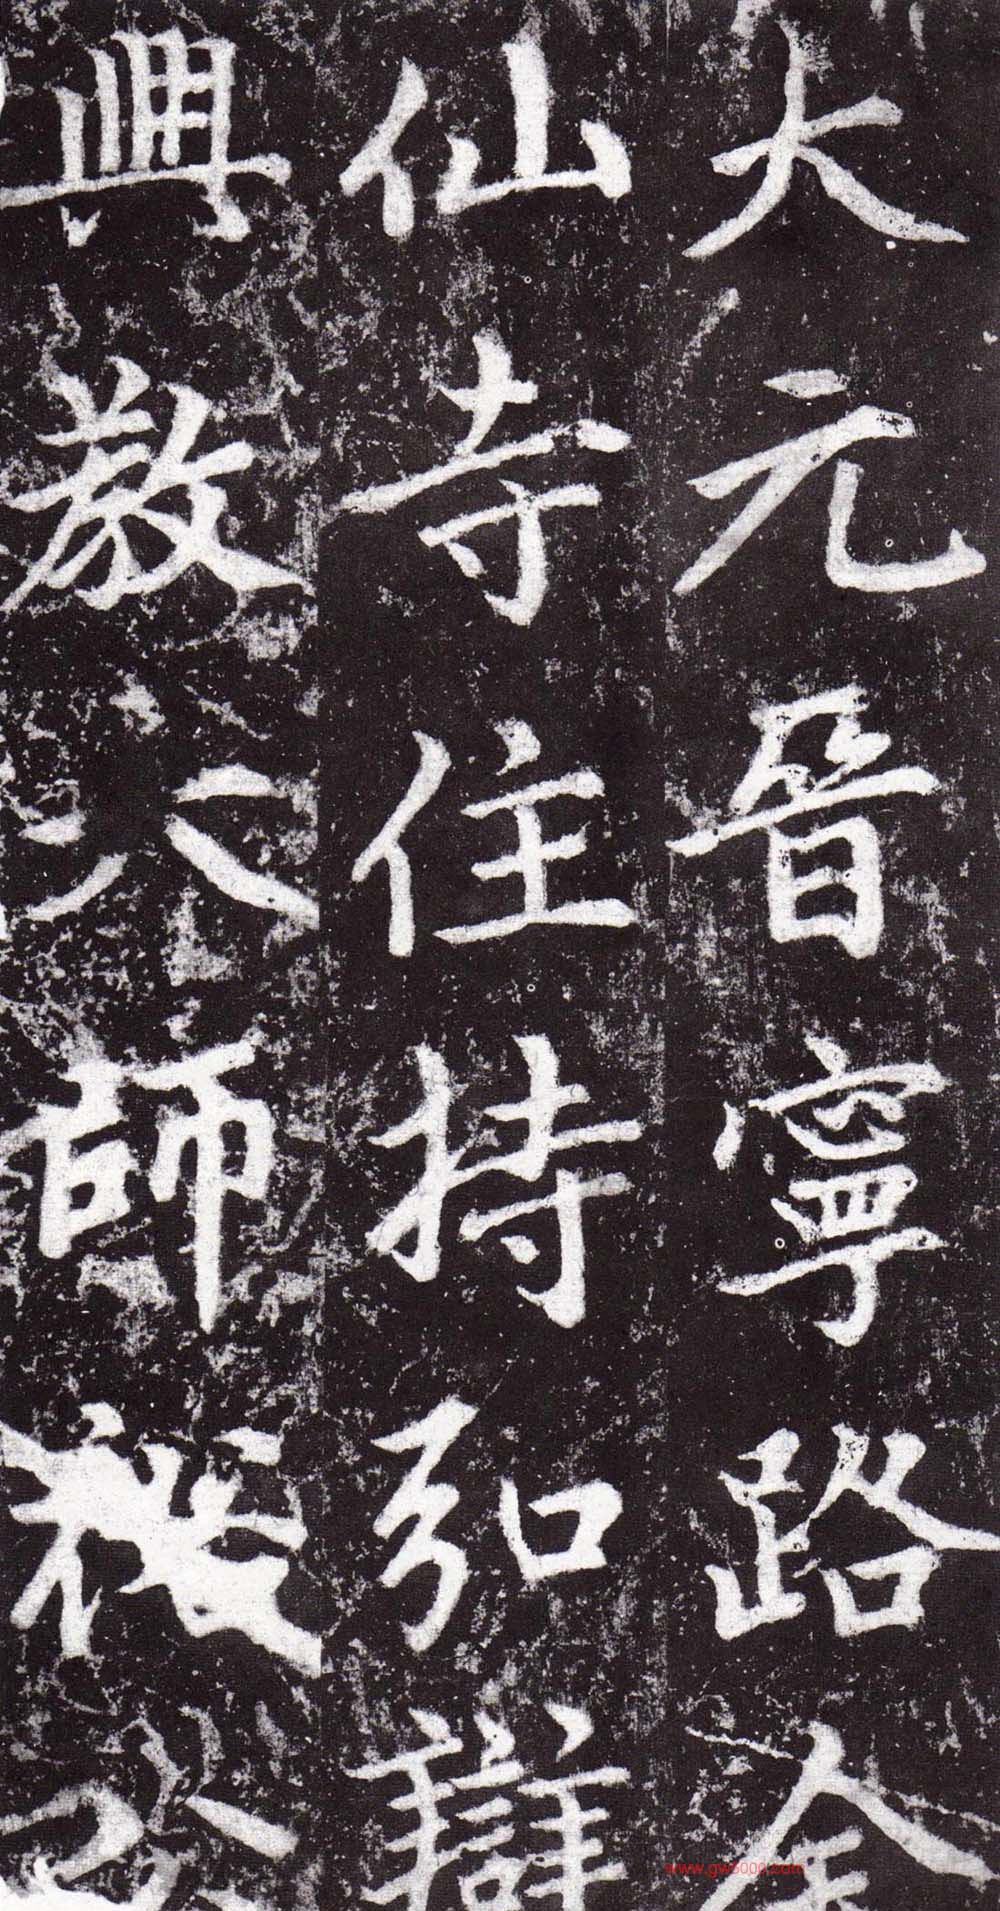 大元晉寧路
仙寺住持弘辯
興教大師
www.gw5000.com